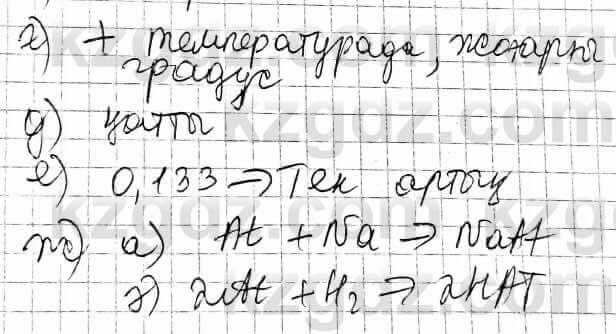 г) + температурада, жоғарғы
градус
д) қатты
е) 0,133 → Тек артық
ж) а) At + Na → NaAt
ә) 2At + H₂ → 2HAT
kzgdz.com